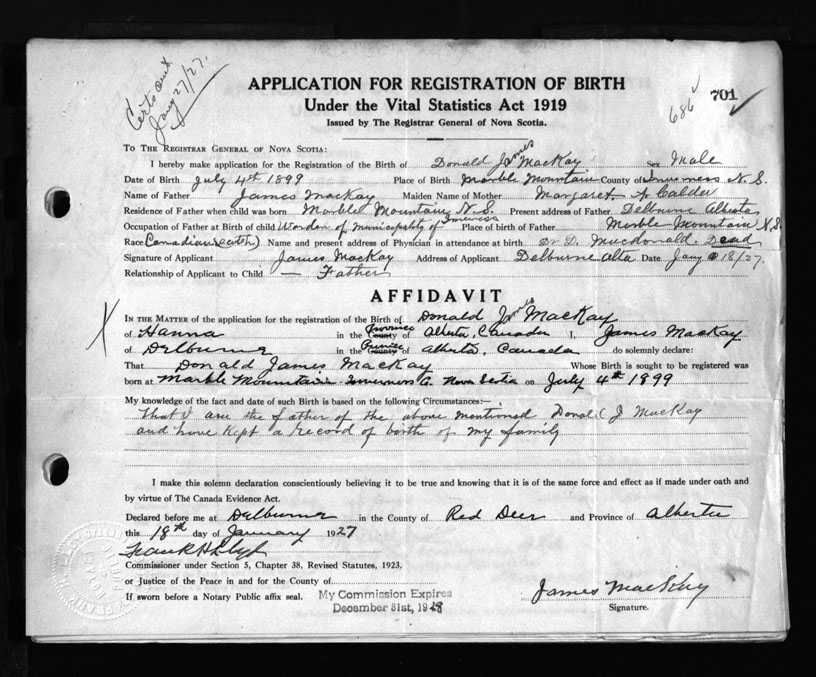 Certs out
Jany 27/27.
APPLICATION FOR REGISTRATION OF BIRTH
Under the Vital Statistics Act 1919
Issued by The Registrar General of Nova Scotia.
686 701
TO THE REGISTRAR GENERAL OF NOVA SCOTIA:
I hereby make application for the Registration of the Birth of Donald James MacKay Sex Male
Date of Birth July 4th 1899 Place of Birth Marble Mountain County of Inverness N.S.
Name of Father James MacKay Maiden Name of Mother Margaret A Calder
Residence of Father when child was born Marble Mountain, N.S. Present address of Father Delburne Alberta
Occupation of Father at Birth of child Warden of Municipality of Inverness Place of birth of Father Marble Mountain N.S.
Race Canadian (Scotch) Name and present address of Physician in attendance at birth Dr D. Macdonald. Dead
Signature of Applicant James MacKay Address of Applicant Delburne Alta Date Jany 18/27.
Relationship of Applicant to Child — Father
AFFIDAVIT
IN THE MATTER of the application for the registration of the Birth of Donald James MacKay
of Hanna in the County Province of Alberta, Canada I, James MacKay
of Delburne in the County Province of Alberta, Canada do solemnly declare:
That Donald James MacKay Whose Birth is sought to be registered was
born at Marble Mountain Inverness Co. Nova Scotia on July 4th 1899
My knowledge of the fact and date of such Birth is based on the following Circumstances:—
That I are the father of the above mentioned Donald J MacKay
and have kept a record of birth of my family
I make this solemn declaration conscientiously believing it to be true and knowing that it is of the same force and effect as if made under oath and
by virtue of The Canada Evidence Act.
Declared before me at Delburne in the County of Red Deer and Province of Alberta
this 18th day of January 1927
Frank H
Commissioner under Section 5, Chapter 38, Revised Statutes, 1923.
or Justice of the Peace in and for the County of
If sworn before a Notary Public affix seal. My Commission Expires
December 31st, 1928
James MacKay
Signature.